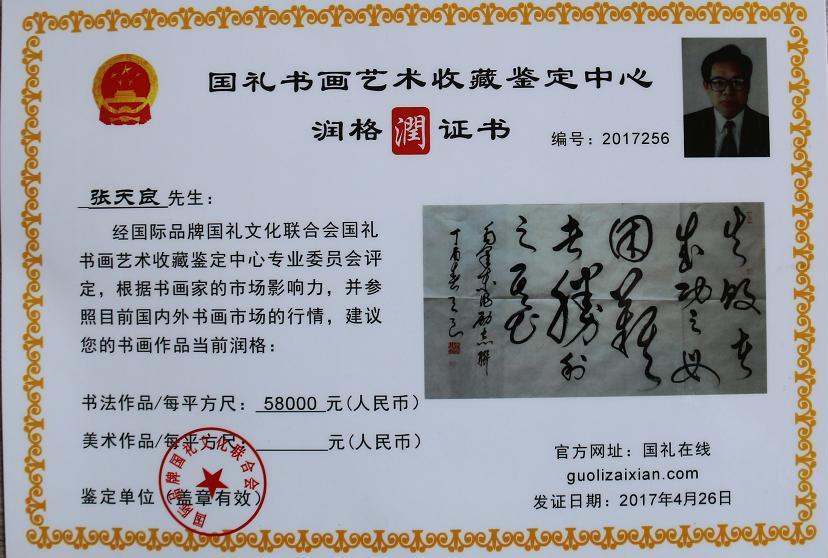 国礼书画艺术收藏鉴定中心
润格 潤 证书
编号：2017256
张天良 先生：
经国际品牌国礼文化联合会国礼
书画艺术收藏鉴定中心专业委员会评
定，根据书画家的市场影响力，并参
照目前国内外书画市场的行情，建议
您的书画作品当前润格：
书法作品/每平方尺： 58000 元(人民币)
美术作品/每平方尺： 元(人民币)
鉴定单位（盖章有效）
国际品牌国礼文化联合会
失败者
成功之母
困难
者胜利
之基
丁酉春
官方网址：国礼在线
guolizaixian.com
发证日期：2017年4月26日